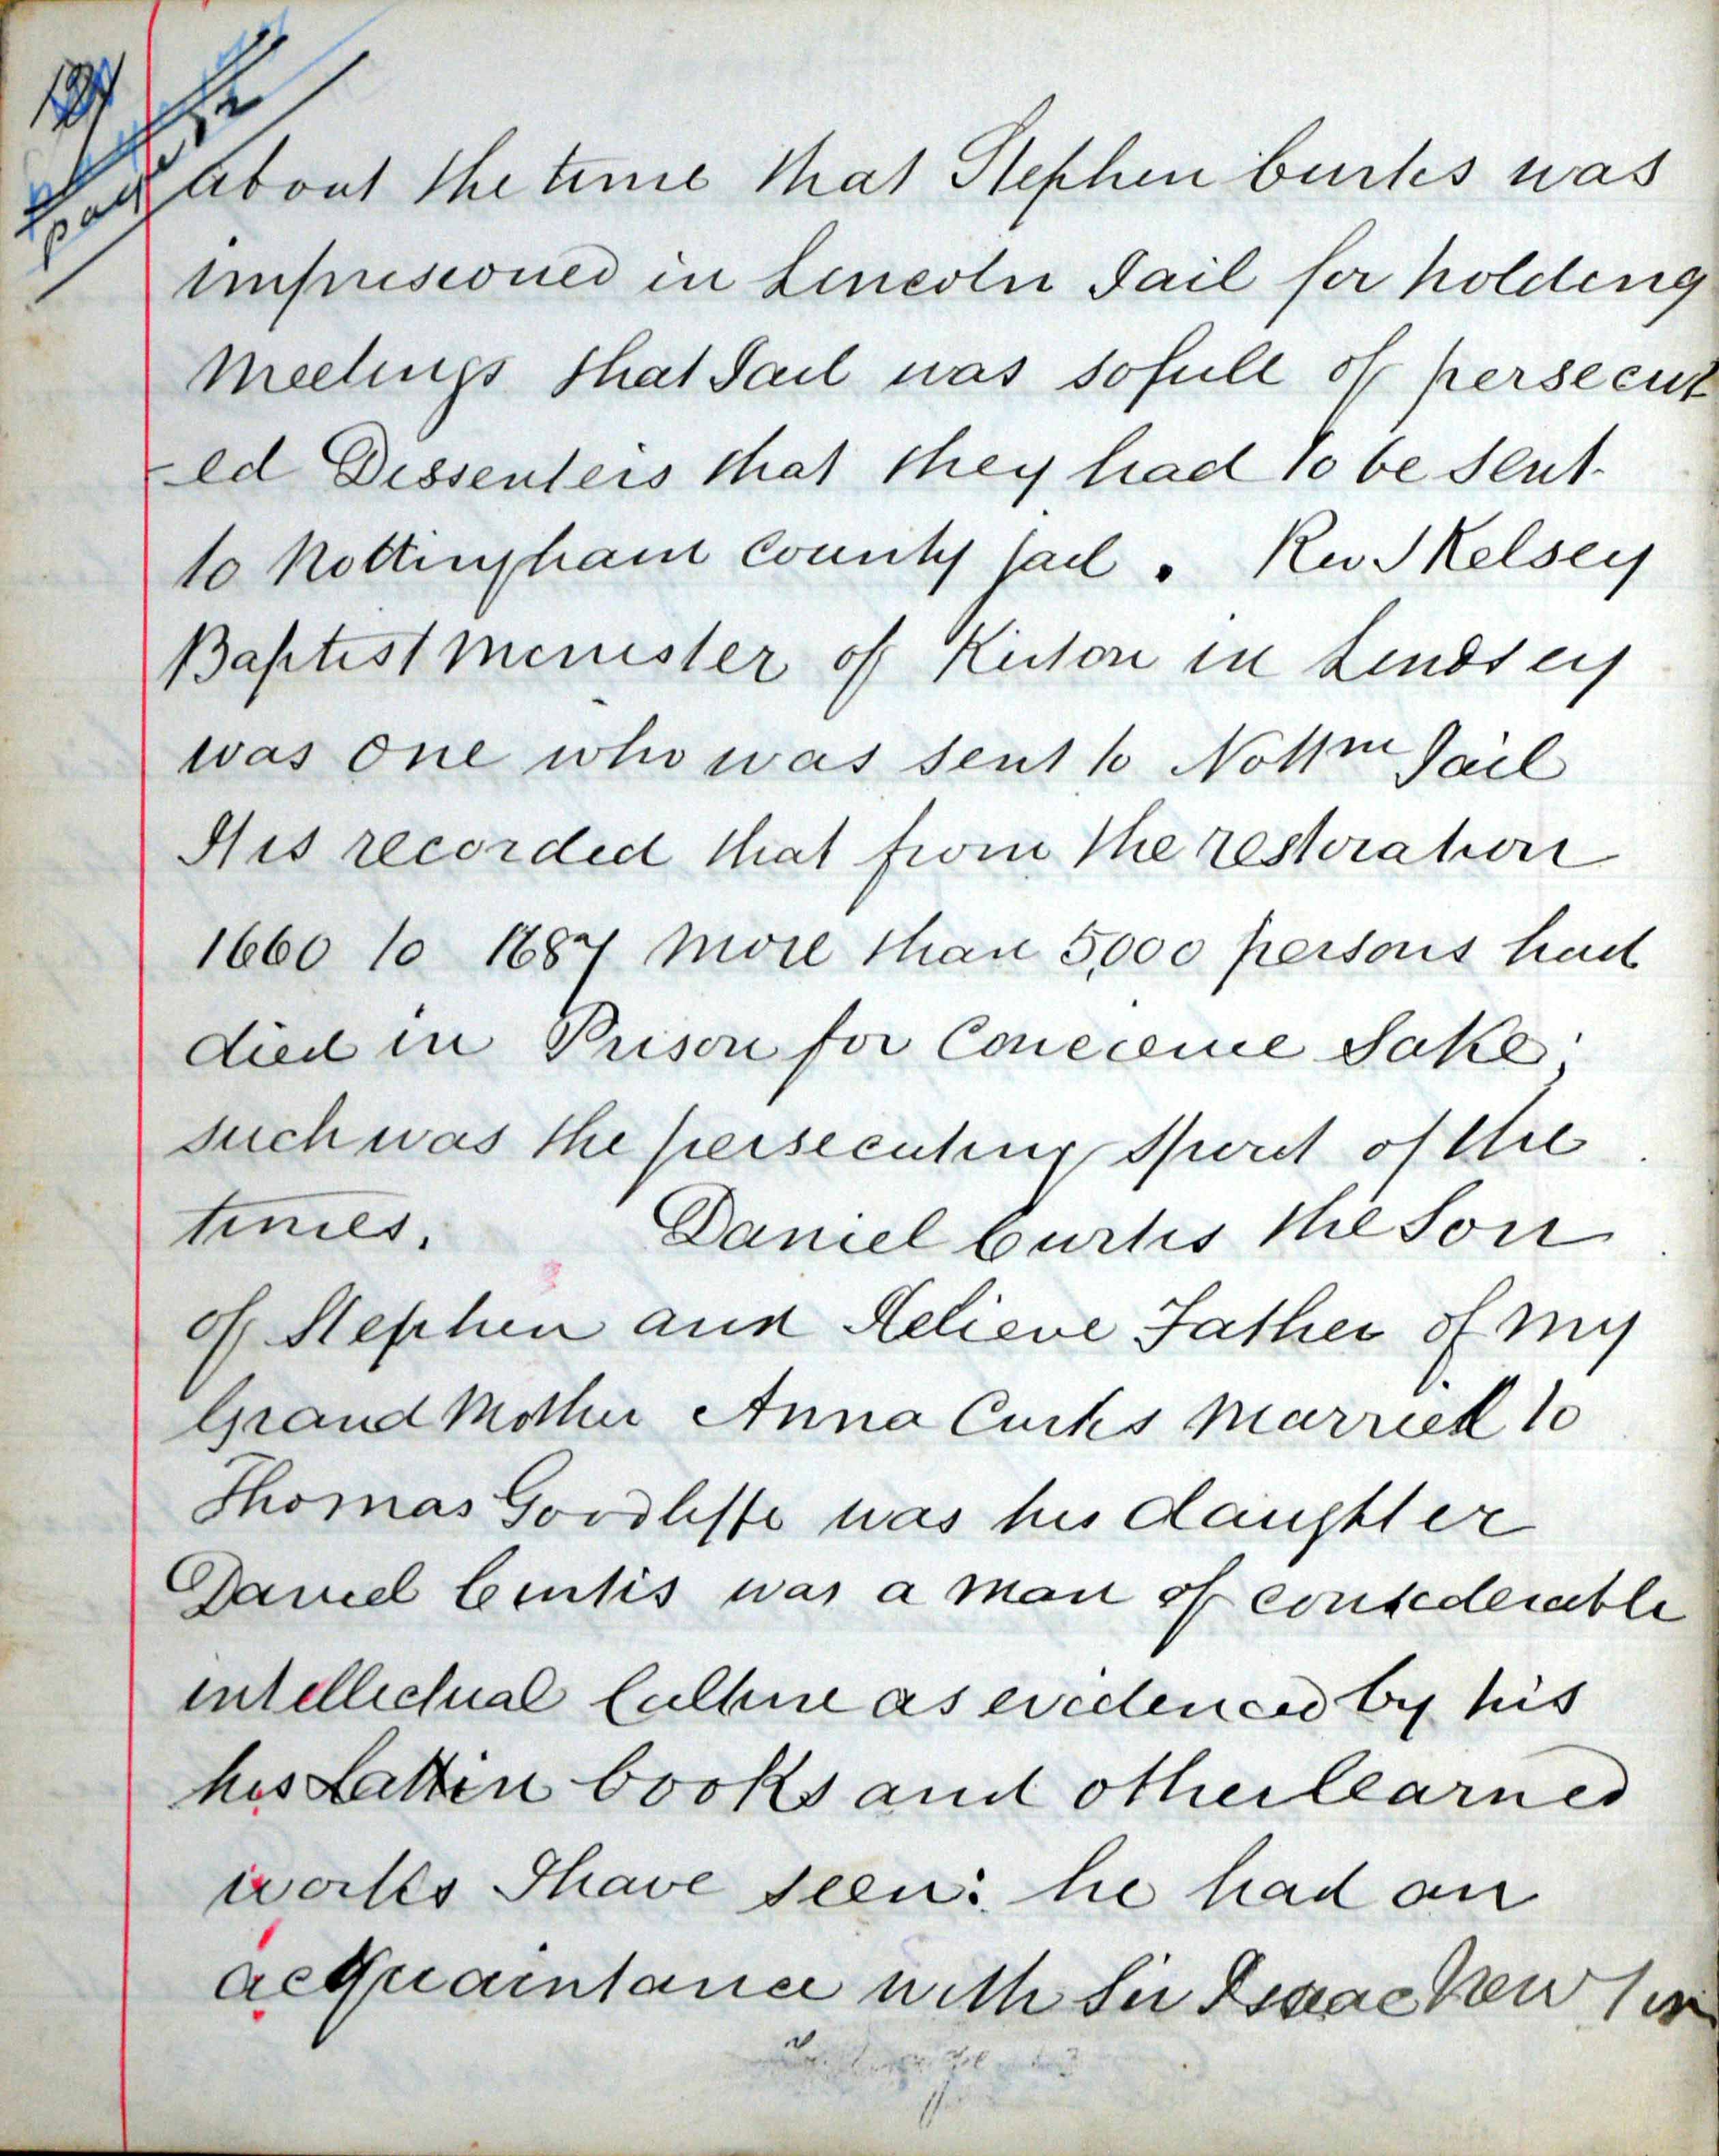 about the time that Stephen Curtis was
imprisioned in Lincoln Jail for holding
Meetings that Jail was so full of persecut
-ed Dissenters that they had to be sent
to Nottingham County jail . Rev J Kelsey
Baptist Minister of Kirton in Lindsey
was one who was sent to Nottm Jail
It is recorded that from the restoration
1660 to 1687 more than 5,000 persons had
died in Prison for Concience Sake;
such was the persecuting Spirit of the
times. Daniel Curtis the Son
of Stephen and Relieve Father of my
Grand Mother Anna Curtis Married to
Thomas Goodliffe was his daughter
Daniel Curtis was a man of considerable
intellectual Culture as evidenced by his
his Lattin books and other learned
works I have seen: he had an
acquaintance with Sir Isaac Newton